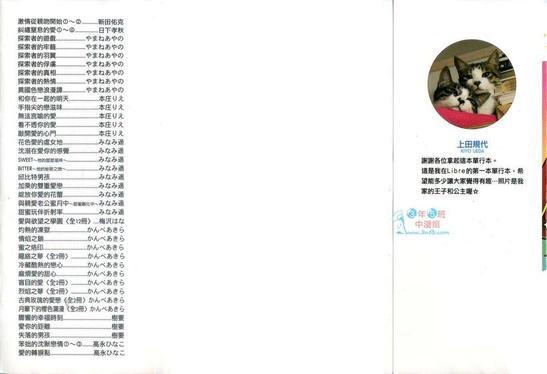 激情從親吻開始①～②............新田佑克
糾纏窒息的愛①～②............日下孝秋
探索者的遊戲............やまねあやの
探索者的牢籠............やまねあやの
探索者的羽翼............やまねあやの
探索者的俘虜............やまねあやの
探索者的真相............やまねあやの
探索者的熱情............やまねあやの
異國色戀浪漫譚............やまねあやの
和你在一起的明天............本庄りえ
手指尖的戀滋味............本庄りえ
無法言喻的愛............本庄りえ
看不透你的愛............本庄りえ
敲開愛的心門............本庄りえ
花色愛的處女地............みなみ遥
沈溺在愛你的感覺............みなみ遥
SWEET～他的甜甜滋味～............みなみ遥
BITTER～他的秘密之戀～............みなみ遥
邱比特男孩............みなみ遥
加乘的雙重愛戀............みなみ遥
綻放你愛的花蕾............みなみ遥
與親愛老公蜜月中～甜蜜戀化中～......みなみ遥
甜蜜玩伴折射率............みなみ遥
愛與欲望之學園〈全12冊〉......梅沢はな
灼熱的凍獄............かんべあきら
情焰之鎖............かんべあきら
蜜之烙印............かんべあきら
寵慾之華〈全2冊〉......かんべあきら
冷藏酷熱的戀心............かんべあきら
麻煩愛的甜心............かんべあきら
盲目的愛〈全2冊〉......かんべあきら
烈焰之華〈全2冊〉......かんべあきら
古典玫瑰的愛戀〈全2冊〉かんべあきら
月暈下的櫻色瀰漫〈全2冊〉かんべあきら
響響的幸福時刻............樹要
愛你的距離............樹要
失落的男孩............樹要
笨拙的沈默戀情①～③......高永ひなこ
愛的轉捩點............高永ひなこ
上田規代
KIYO UEDA
謝謝各位拿起這本單行本。
這是我在Libre的第一本單行本，希
望能多少讓大家覺得有趣…照片是我
家的王子和公主喔☆
3年5班
中漫組